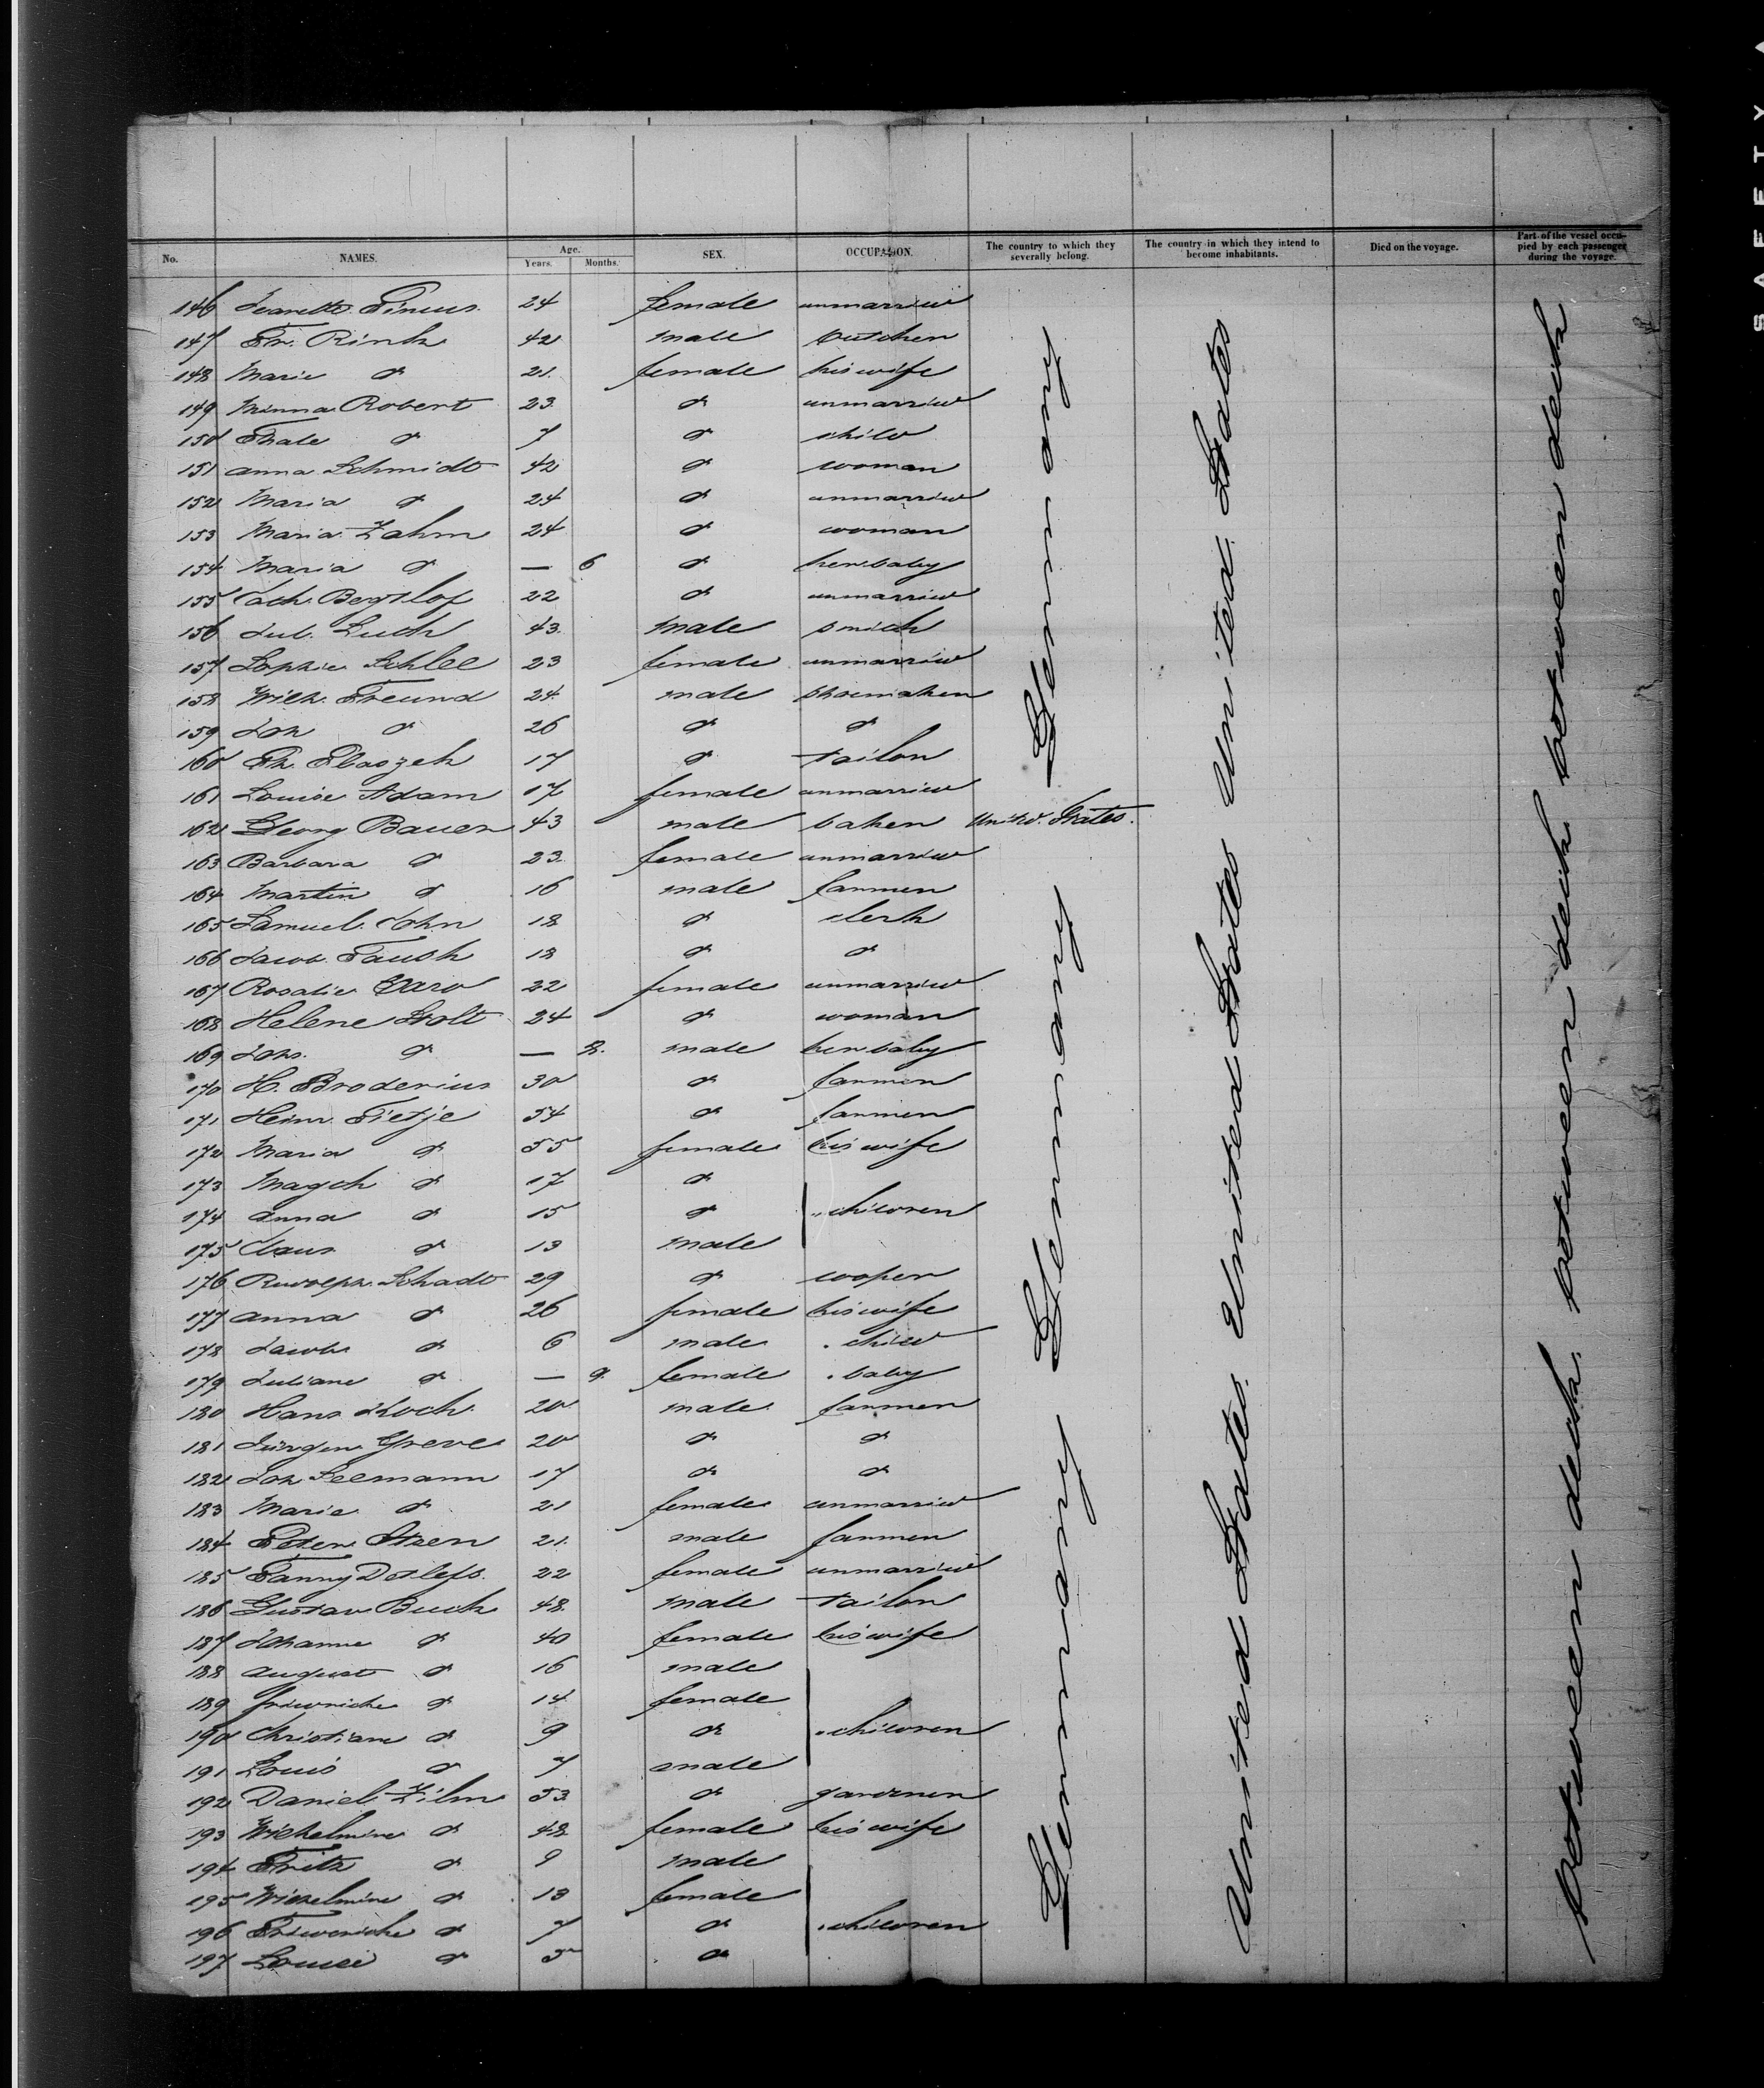 SAFETY
No. NAMES. Age. Years. Months. SEX. OCCUPATION. The country to which they severally belong. The country in which they intend to become inhabitants. Died on the voyage. Part of the vessel occupied by each passenger during the voyage.
146 Jeanette Pincus. 24 female unmarried
147 Fr. Rink 42 male butcher
148 Marie d 21. female his wife
149 Minna Robert 23 d unmarried
150 d 7 d child
151 Anna Schmidt 42 d woman
152 Maria d 24 d unmarried
153 Maria Zahm 24 d woman
154 Maria d — 6 d her baby
155 Cath. 22 d unmarried
156 Jul. 43. male smith
157 Sophie Schlee 23 female unmarried
158 Wilh. Freund 24. male shoemaker
159 Joh d 26 d d
160 17 d tailor
161 Louise Adam 17 female unmarried
162 Georg Bauer 43 male baker United States.
163 Barbara d 23. female unmarried
164 Martin d 16 male farmer
165 Samuel Cohn 18 d clerk
166 Jacob 18 d d
167 Rosalie 22 female unmarried
168 Helene Stolt 24 d woman
169 Johs. d — male her baby
170 H. Broderius 30 d farmer
171 Heinr. Tietje 54 d farmer
172 Maria d 55 female his wife
173 d 17 d
174 Anna d 15 d " children
175 Claus d 13 male
176 Rudolph Schadt 29 d cooper
177 Anna d 26 female his wife
178 Jacob d 6 male " child
179 Juliane d — 9. female " baby
180 Hans Koch 20 male farmer
181 Jürgen Greve 20 d d
182 Joh. Seemann 17 d d
183 Maria d 21 female unmarried
184 Peter 21. male farmer
185 Fanny Detlefs. 22 female unmarried
186 Gustav Buck 48. male tailor
187 Johanne d 40 female his wife
188 August d 16 male
189 Friedricke d 14 female
190 Christiane d 9 d " children
191 Louis d 7 male
192 Daniel Zilm 53 d gardener
193 Wilhelmine d 48 female his wife
194 Fritz d 9 male
195 Wilhelmine d 13 female
196 Friedericke d 7 d " children
197 Louise d 5 d
Germany Germany Germany
United States United States United States
between deck. between deck between deck